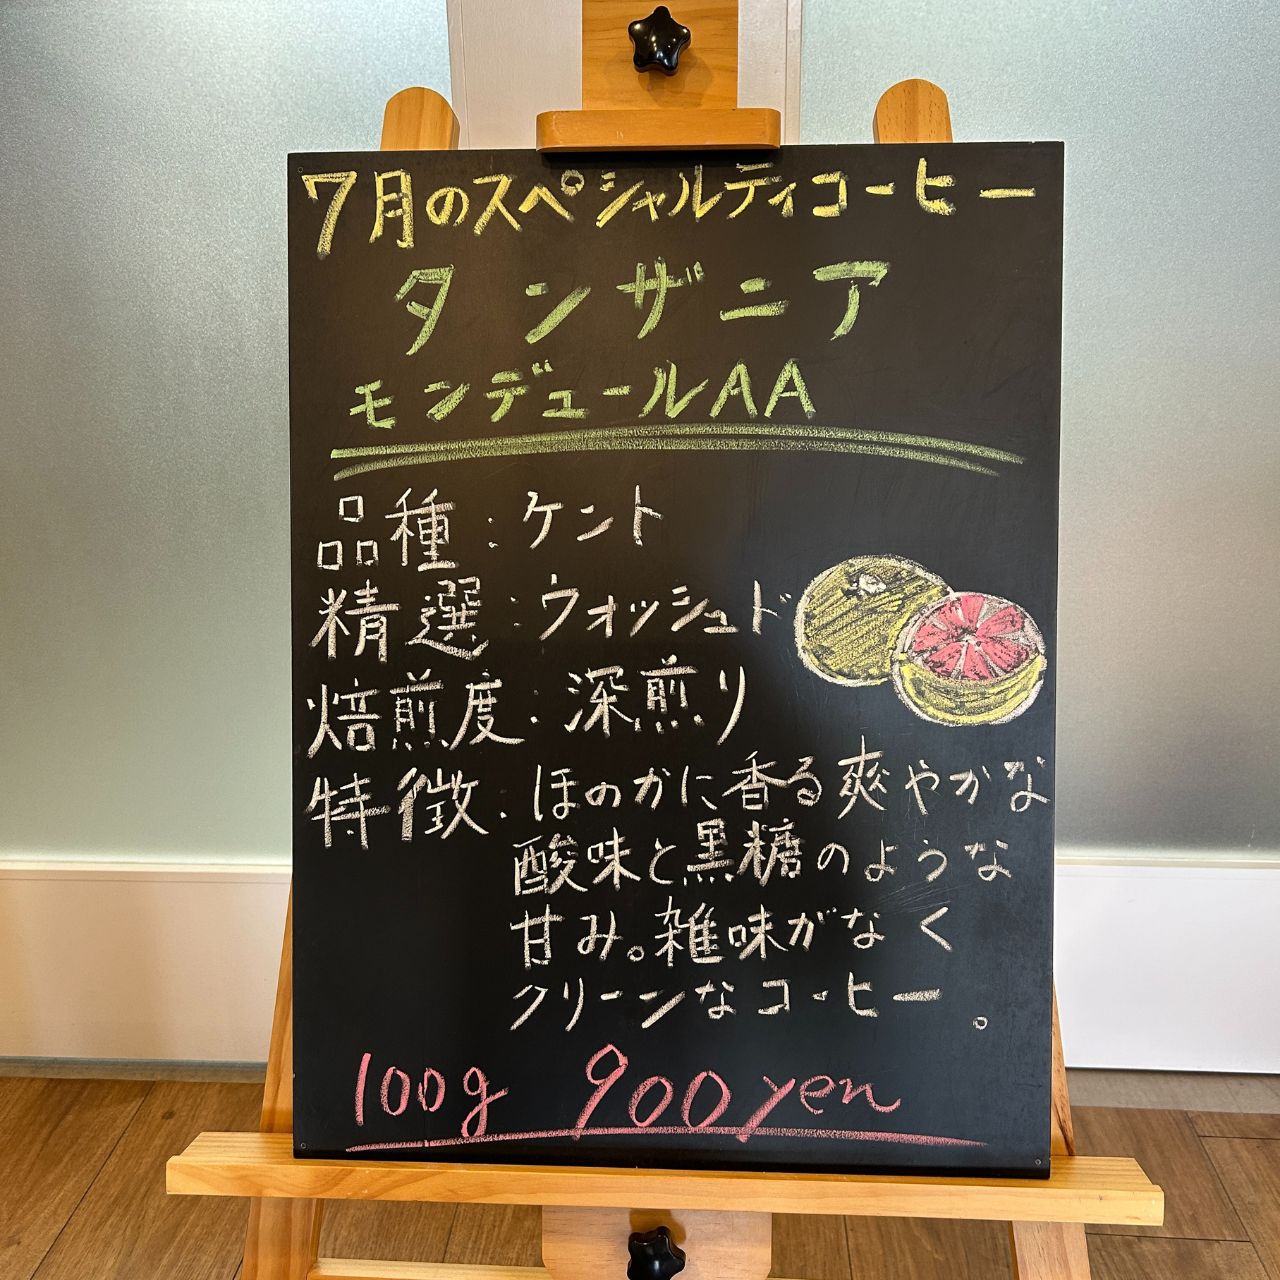 7月のスペシャルティコーヒー
タンザニア
モンデュールAA
品種:ケント
精選:ウォッシュド
焙煎度:深煎り
特徴:ほのかに香る爽やかな
酸味と黒糖のような
甘み。雑味がなく
クリーンなコーヒー。
100g 900yen